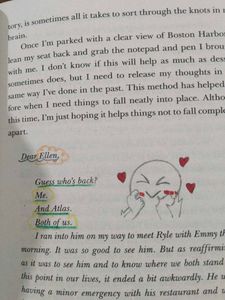 tory, is sometimes all it takes to sort through the knots in
brain.
Once I'm parked with a clear view of Boston Harbo
lean my seat back and grab the notepad and pen I brou
with me. I don't know if this will help as much as des
sometimes does, but I need to release my thoughts in
same way I've done in the past. This method has helped
fore when I need things to fall neatly into place. Altho
this time, I'm just hoping it helps things not to fall comple
apart.
Dear Ellen,
Guess who's back?
Me.
And Atlas.
Both of us.
I ran into him on my way to meet Ryle with Emmy th
morning. It was so good to see him. But as reaffirmi
as it was to see him and to know where we both stand
this point in our lives, it ended a bit awkwardly. He w
having a minor emergency with his restaurant and